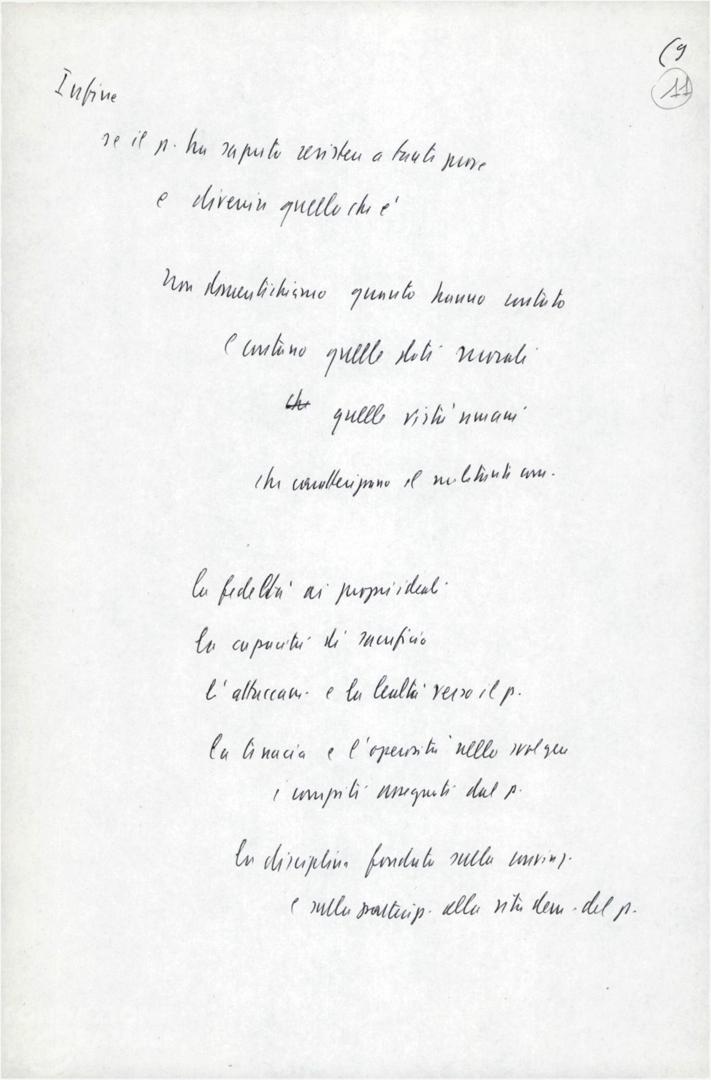 (9
11
Infine
se il p. ha saputo resistere a tante prove
e divenire quello che è
non dimentichiamo quanto hanno contato
e contano quelle doti morali
che quelle virtù umane
che caratterizzano il militante com.
la fedeltà ai propri ideali
la capacità di sacrificio
l'attaccam. e la lealtà verso il p.
la tenacia e l'operosità nello svolgere
i compiti assegnati dal p.
la disciplina fondata sulla convinz.
e sulla partecip. alla vita dem. del p.